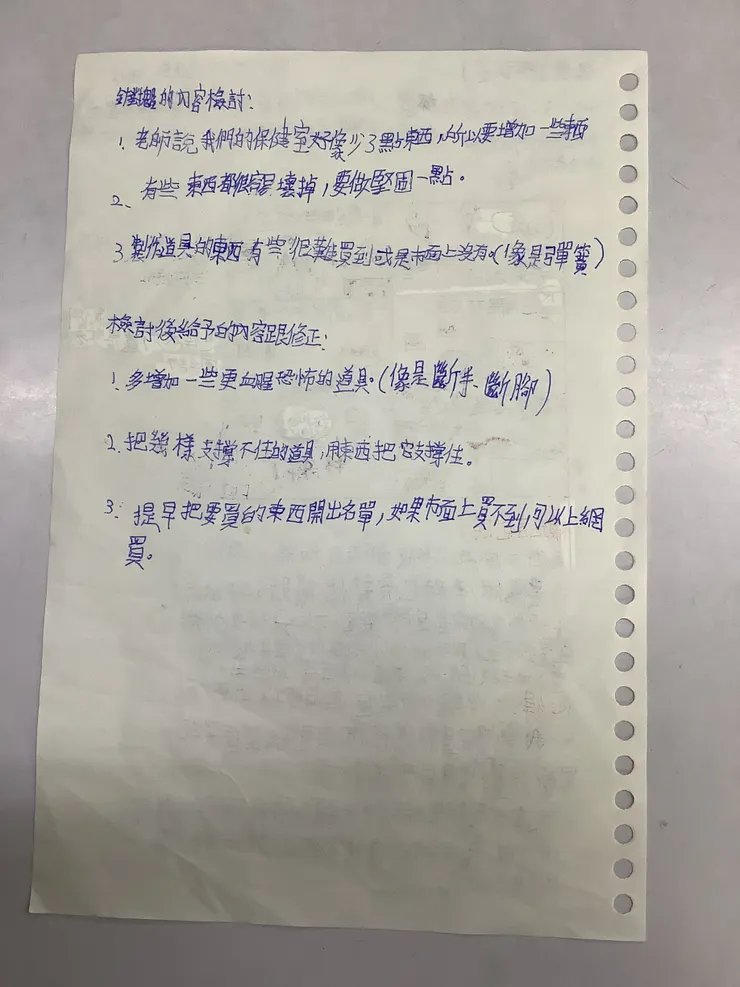 針對鬼屋的內容檢討:
1. 老師說我們的保健室好像少了點東西,所以要增加一些東西
2. 有些東西都很容易壞掉,要做堅固一點。
3. 製作道具的東西有些很難買到或是市面上沒有。(像是彈簧)
檢討後給予的內容跟修正:
1. 多增加一些更血腥恐怖的道具。(像是斷手、斷腳)
2. 把幾樣支撐不住的道具,用東西把它支撐住。
3. 提早把要買的東西開出名單,如果市面上買不到,可以上網
買。